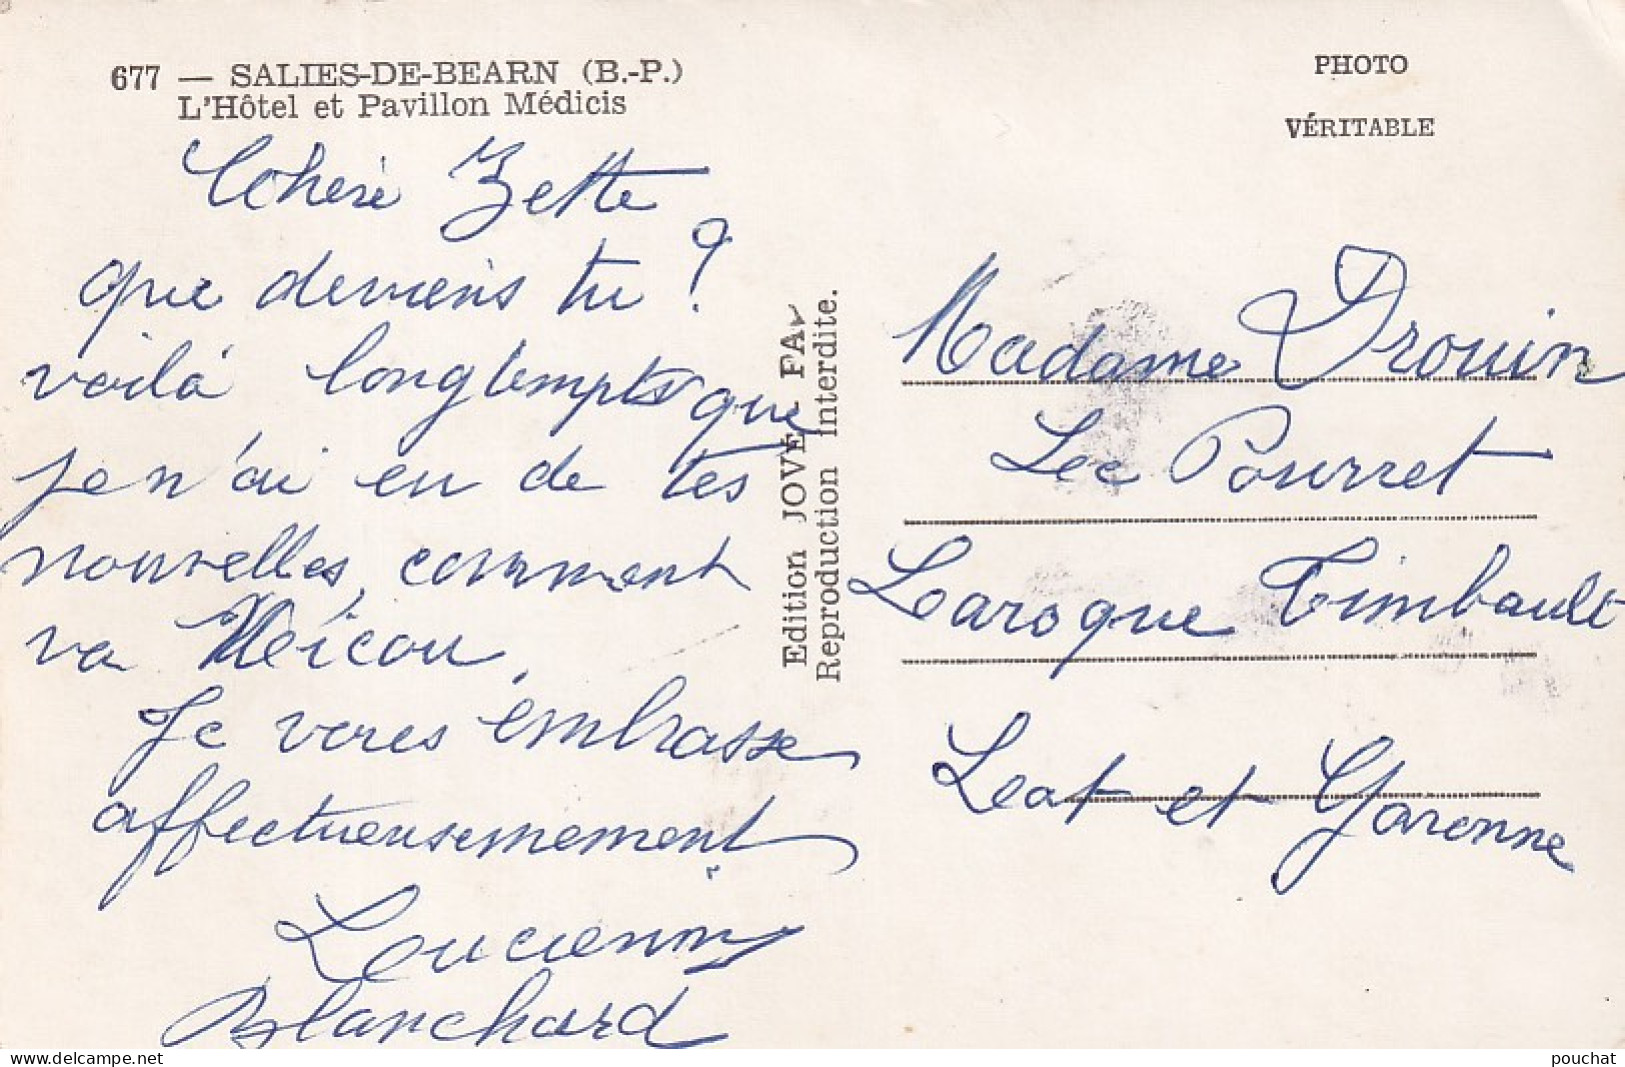 677 — SALIES-DE-BEARN (B.-P.)
L'Hôtel et Pavillon Médicis
Chéri Zette
que deviens tu ?
voilà longtempts que
je n'ai eu de tes
nouvelles, comment
va
Je vous embrasse
affectueusemement
Lucienne
Blanchard
Edition JOVÉ PAU
Reproduction interdite.
PHOTO
VÉRITABLE
Madame Drouin
Le Pourret
Laroque Timbault
Lot et Garonne
pouchat